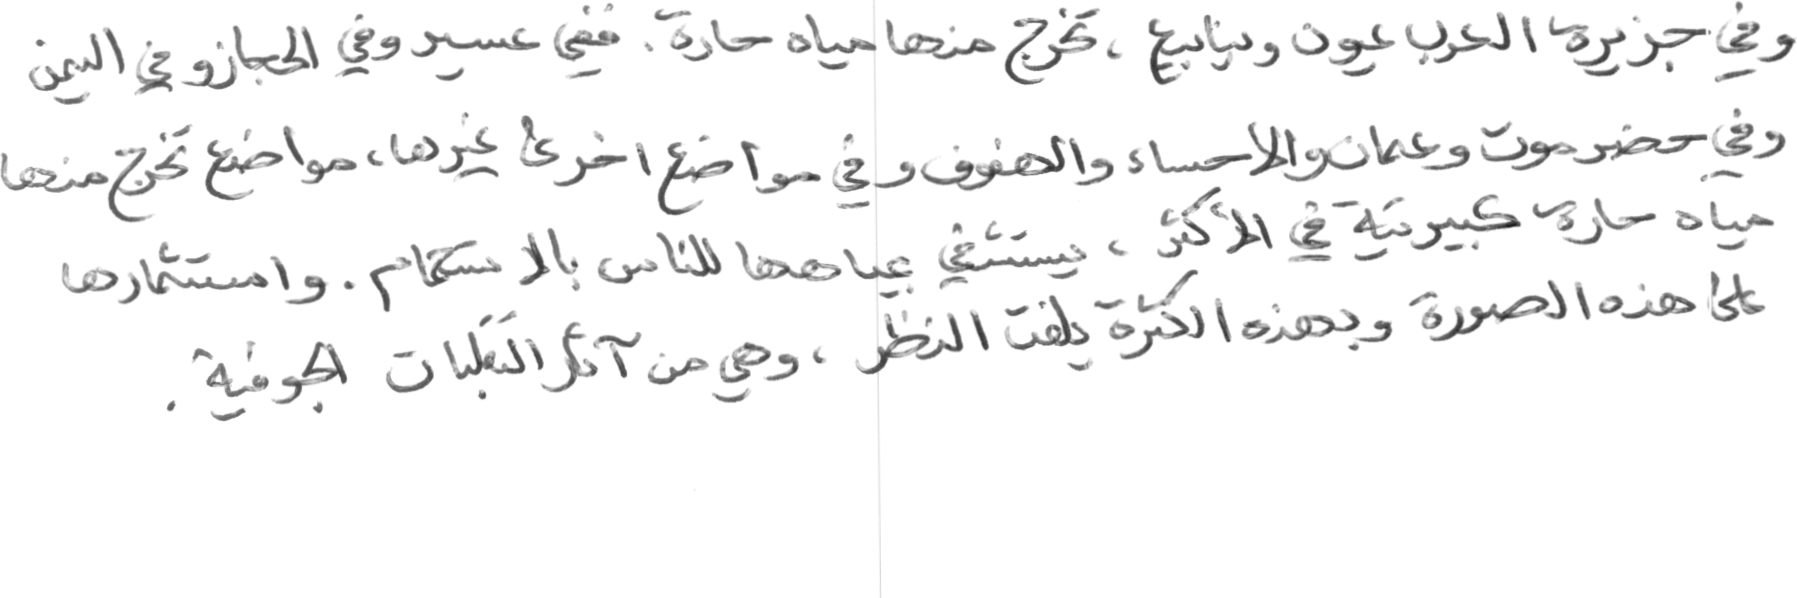 وفي جزيرة العرب عيون وينابيع ، تخرج منها مياه حارة . ففي عسير وفي الحجاز و في اليمن
وفي حضرموت وعمان والاحساء والهفوف و في مواضع اخرى غيرها، مواضع تخرج منها
مياه حارة كبيرتية في الأكثر ، يستشفي بمياهها للناس بالاستحمام . واستثمارها
على هذه الصورة وبهذه الكثرة يلفت النظر ، وهي من آثار التقلبات الجوفية .